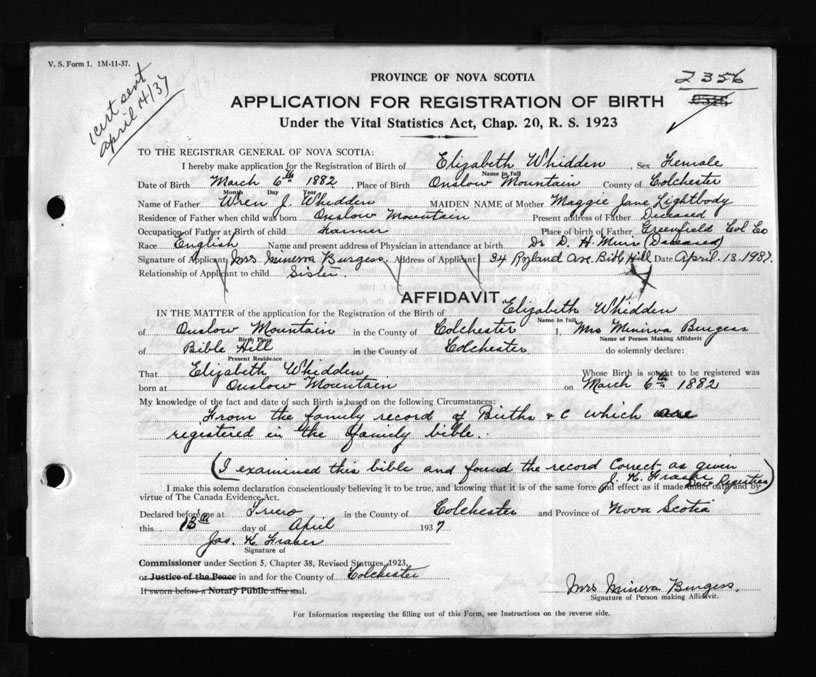 V. S. Form 1. 1M-11-37.
1 cert sent
april 14/37
PROVINCE OF NOVA SCOTIA
2356
APPLICATION FOR REGISTRATION OF BIRTH
Under the Vital Statistics Act, Chap. 20, R. S. 1923
TO THE REGISTRAR GENERAL OF NOVA SCOTIA:
I hereby make application for the Registration of Birth of Elizabeth Whidden, Sex Female
Name in full
Date of Birth March 6th 1882, Place of Birth Onslow Mountain County of Colchester
Month Day Year
Name of Father Wren J. Whidden MAIDEN NAME of Mother Maggie Jane Lightbody
Residence of Father when child was born Onslow Mountain Present address of Father Deceased
Occupation of Father at Birth of child Farmer Place of birth of Father Greenfield Col Co
Race English Name and present address of Physician in attendance at birth Dr D. H. Muir (Deceased)
Signature of Applicant Mrs Minerva Burgess. Address of Applicant 34 Ryland Ave. Bible Hill Date April. 13. 1937.
Relationship of Applicant to child Sister.
AFFIDAVIT
IN THE MATTER of the application for the Registration of the Birth of Elizabeth Whidden
Name in full
of Onslow Mountain in the County of Colchester I, Mrs Minerva Burgess
Birth Place Name of Person Making Affidavit
of Bible Hill in the County of Colchester do solemnly declare:
Present Residence
That Elizabeth Whidden Whose Birth is sought to be registered was
born at Onslow Mountain on March 6th 1882
My knowledge of the fact and date of such Birth is based on the following Circumstances:
From the family record of Births &C which are
registered in the family bible.
(I examined this bible and found the record Correct as given
J. K. Fraser Div Registrar)
I make this solemn declaration conscientiously believing it to be true, and knowing that it is of the same force and effect as if made under oath and by
virtue of The Canada Evidence Act.
Declared before me at Truro in the County of Colchester and Province of Nova Scotia
this 13th day of April 1937
Jas. K. Fraser
Signature of
Commissioner under Section 5, Chapter 38, Revised Statutes, 1923,
or Justice of the Peace in and for the County of Colchester
If sworn before a Notary Public affix seal.
Mrs Minerva Burgess.
Signature of Person making Affidavit.
For Information respecting the filling out of this Form, see Instructions on the reverse side.